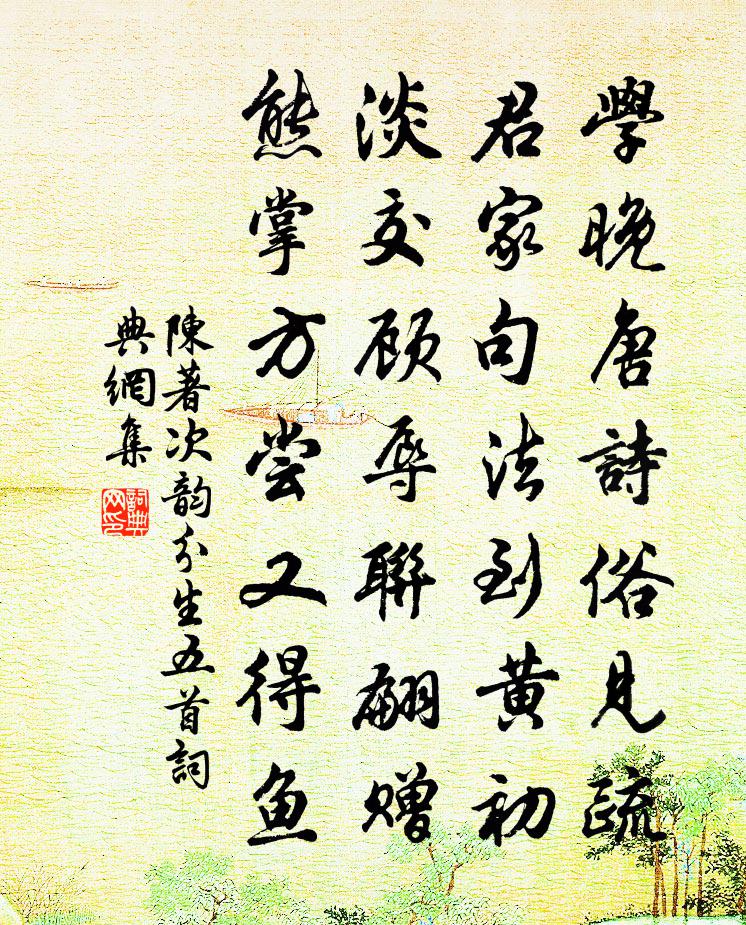 學晚唐詩俗見疏
君家句法到黃初
淡交顧辱聯翩贈
熊掌方嘗又得魚
陳著次韵弥生五首詞
典網集
詞典
网印